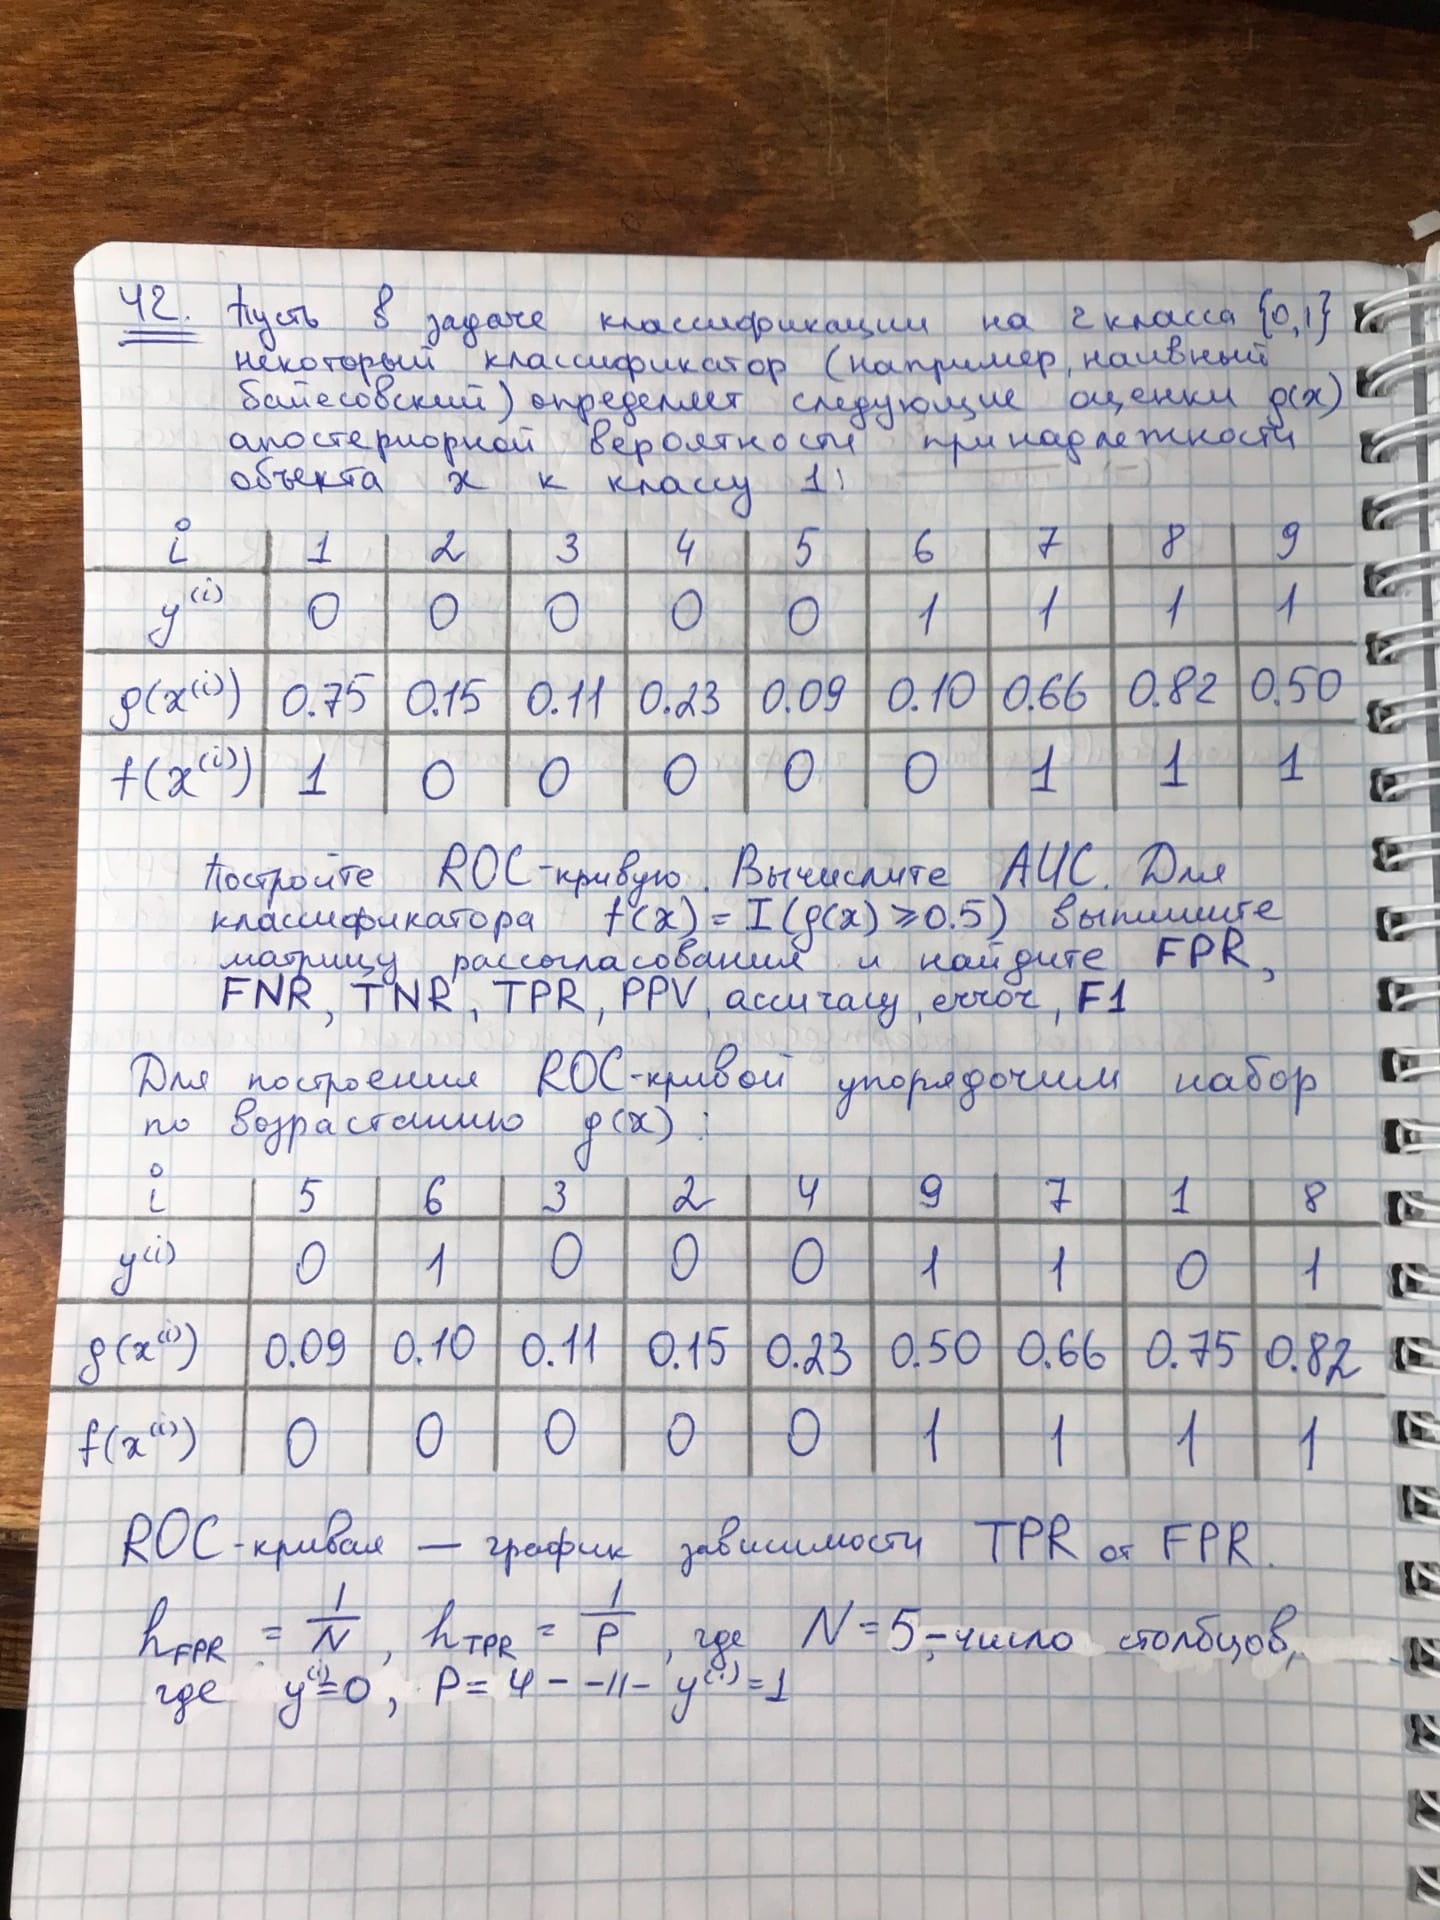 42. Пусть в задаче классификации на 2 класса {0,1}
некоторый классификатор (например, наивный
байесовский) определяет следующие оценки g(x)
апостериорной вероятности принадлежности
объекта x к классу 1:
i 1 2 3 4 5 6 7 8 9
y⁽ⁱ⁾ 0 0 0 0 0 1 1 1 1
g(x⁽ⁱ⁾) 0.75 0.15 0.11 0.23 0.09 0.10 0.66 0.82 0.50
f(x⁽ⁱ⁾) 1 0 0 0 0 0 1 1 1
Постройте ROC-кривую. Вычислите AUC. Для
классификатора f(x) = I(g(x) ⩾ 0.5) выпишите
матрицу рассогласования и найдите FPR,
FNR, TNR, TPR, PPV, accuracy, error, F1
Для построения ROC-кривой упорядочим набор
по возрастанию g(x):
i 5 6 3 2 4 9 7 1 8
y⁽ⁱ⁾ 0 1 0 0 0 1 1 0 1
g(x⁽ⁱ⁾) 0.09 0.10 0.11 0.15 0.23 0.50 0.66 0.75 0.82
f(x⁽ⁱ⁾) 0 0 0 0 0 1 1 1 1
ROC-кривая — график зависимости TPR от FPR.
h_FPR = 1/N, h_TPR = 1/P, где N = 5 - число столбцов,
где y⁽ⁱ⁾=0, P = 4 - -11- y⁽ⁱ⁾=1